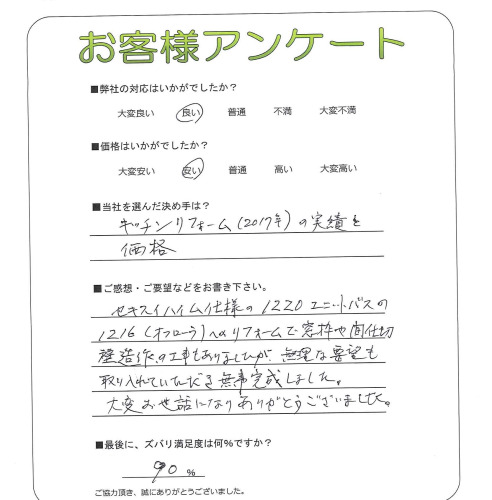 お客様アンケート
■弊社の対応はいかがでしたか？
大変良い 良い 普通 不満 大変不満
■価格はいかがでしたか？
大変安い 安い 普通 高い 大変高い
■当社を選んだ決め手は？
キッチンリフォーム(2017年)の実績と
価格
■ご感想・ご要望などをお書き下さい。
セキスイハイム仕様の1220ユニットバスの
1216(オフローラ)へのリフォームで窓枠や間仕切
壁造作の工事もありましたが、無理な要望も
取り入れていただき無事完成しました。
大変お世話になりありがとうございました。
■最後に、ズバリ満足度は何%ですか？
90 %
ご協力頂き、誠にありがとうございました。